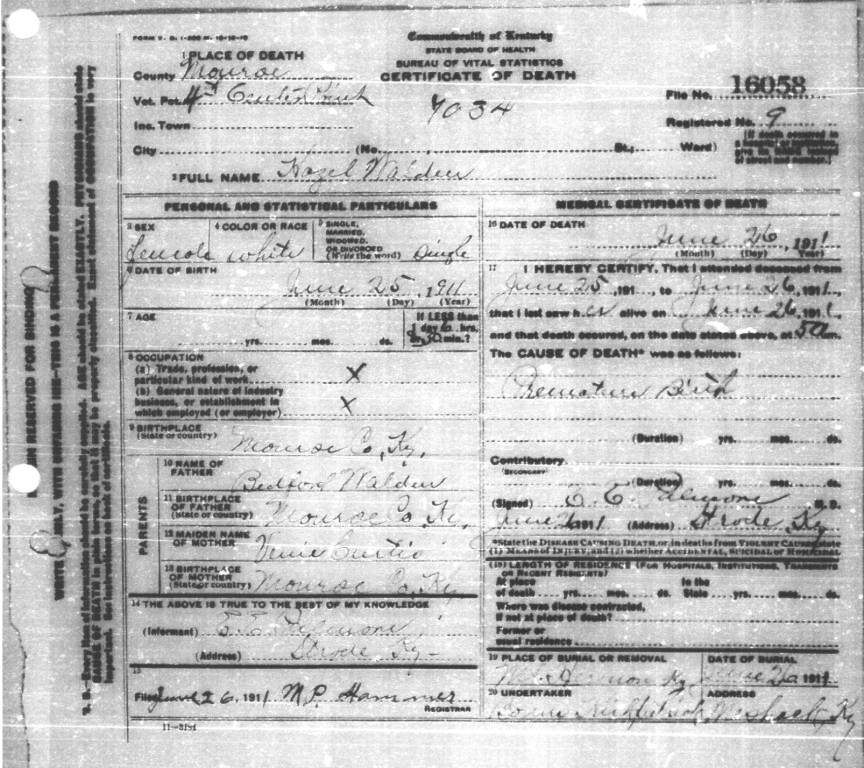 FORM V. S. 1-
Commonwealth of Kentucky
STATE BOARD OF HEALTH
BUREAU OF VITAL STATISTICS
CERTIFICATE OF DEATH
1 PLACE OF DEATH
County Monroe
Vot. Pct. 4
Inc. Town
City (No. St., Ward)
7034
File No. 16058
Registered No. 9
(If death occurred in
2 FULL NAME Hazel Walden
PERSONAL AND STATISTICAL PARTICULARS
3 SEX
4 COLOR OR RACE white
5 SINGLE,
MARRIED,
WIDOWED,
OR DIVORCED
(Write the word) Single
6 DATE OF BIRTH
June 25, 1911
(Month) (Day) (Year)
7 AGE
yrs. mos. ds.
If LESS than
1 day hrs.
or 30 min.?
8 OCCUPATION
(a) Trade, profession, or
particular kind of work X
(b) General nature of industry
business, or establishment in
which employed (or employer) X
9 BIRTHPLACE
(State or country) Monroe Co, Ky,
PARENTS
10 NAME OF
FATHER Bedford Walden
11 BIRTHPLACE
OF FATHER
(State or country) Monroe Co, Ky,
12 MAIDEN NAME
OF MOTHER Venie Curtis
13 BIRTHPLACE
OF MOTHER
(State or country) Monroe Co, Ky
14 THE ABOVE IS TRUE TO THE BEST OF MY KNOWLEDGE
(Informant)
(Address) Strode Ky-
15
Filed June 26, 1911 M.P. Hammer
REGISTRAR
11-3191
MEDICAL CERTIFICATE OF DEATH
16 DATE OF DEATH
June 26, 1911
(Month) (Day) Year)
17 I HEREBY CERTIFY, That I attended deceased from
June 25, 191 , to June 26, 1911,
that I last saw her alive on June 26, 1911,
and that death occured, on the date stated above, at 5 a m.
The CAUSE OF DEATH* was as follows:
Premature Birth
(Duration) yrs. mos. ds.
Contributory
(SECONDARY)
(Duration) yrs. mos. ds.
(Signed) M. D.
1911 (Address) Strode Ky
*State the DISEASE CAUSING DEATH, or, in deaths from VIOLENT CAUSES, state
(1) MEANS OF INJURY, and (2) whether ACCIDENTAL, SUICIDAL or HOMICIDAL
(18) LENGTH OF RESIDENCE (FOR HOSPITALS, INSTITUTIONS, TRANSIENTS
OR RECENT RESIDENTS)
At place
of death yrs. mos. ds.
In the
State yrs. mos. ds.
Where was disease contracted,
If not at place of death?
Former or
usual residence
19 PLACE OF BURIAL OR REMOVAL
Ky
DATE OF BURIAL
June 26 1911
20 UNDERTAKER
ADDRESS
Ky
MARGIN RESERVED FOR BINDING
WRITE PLAINLY, WITH UNFADING INK—THIS IS A PERMANENT RECORD
N. B.—Every item of information should be carefully supplied. AGE should be stated EXACTLY. PHYSICIANS should state
CAUSE OF DEATH in plain terms, so that it may be properly classified. Exact statement of OCCUPATION is very
important. See instructions on back of certificate.